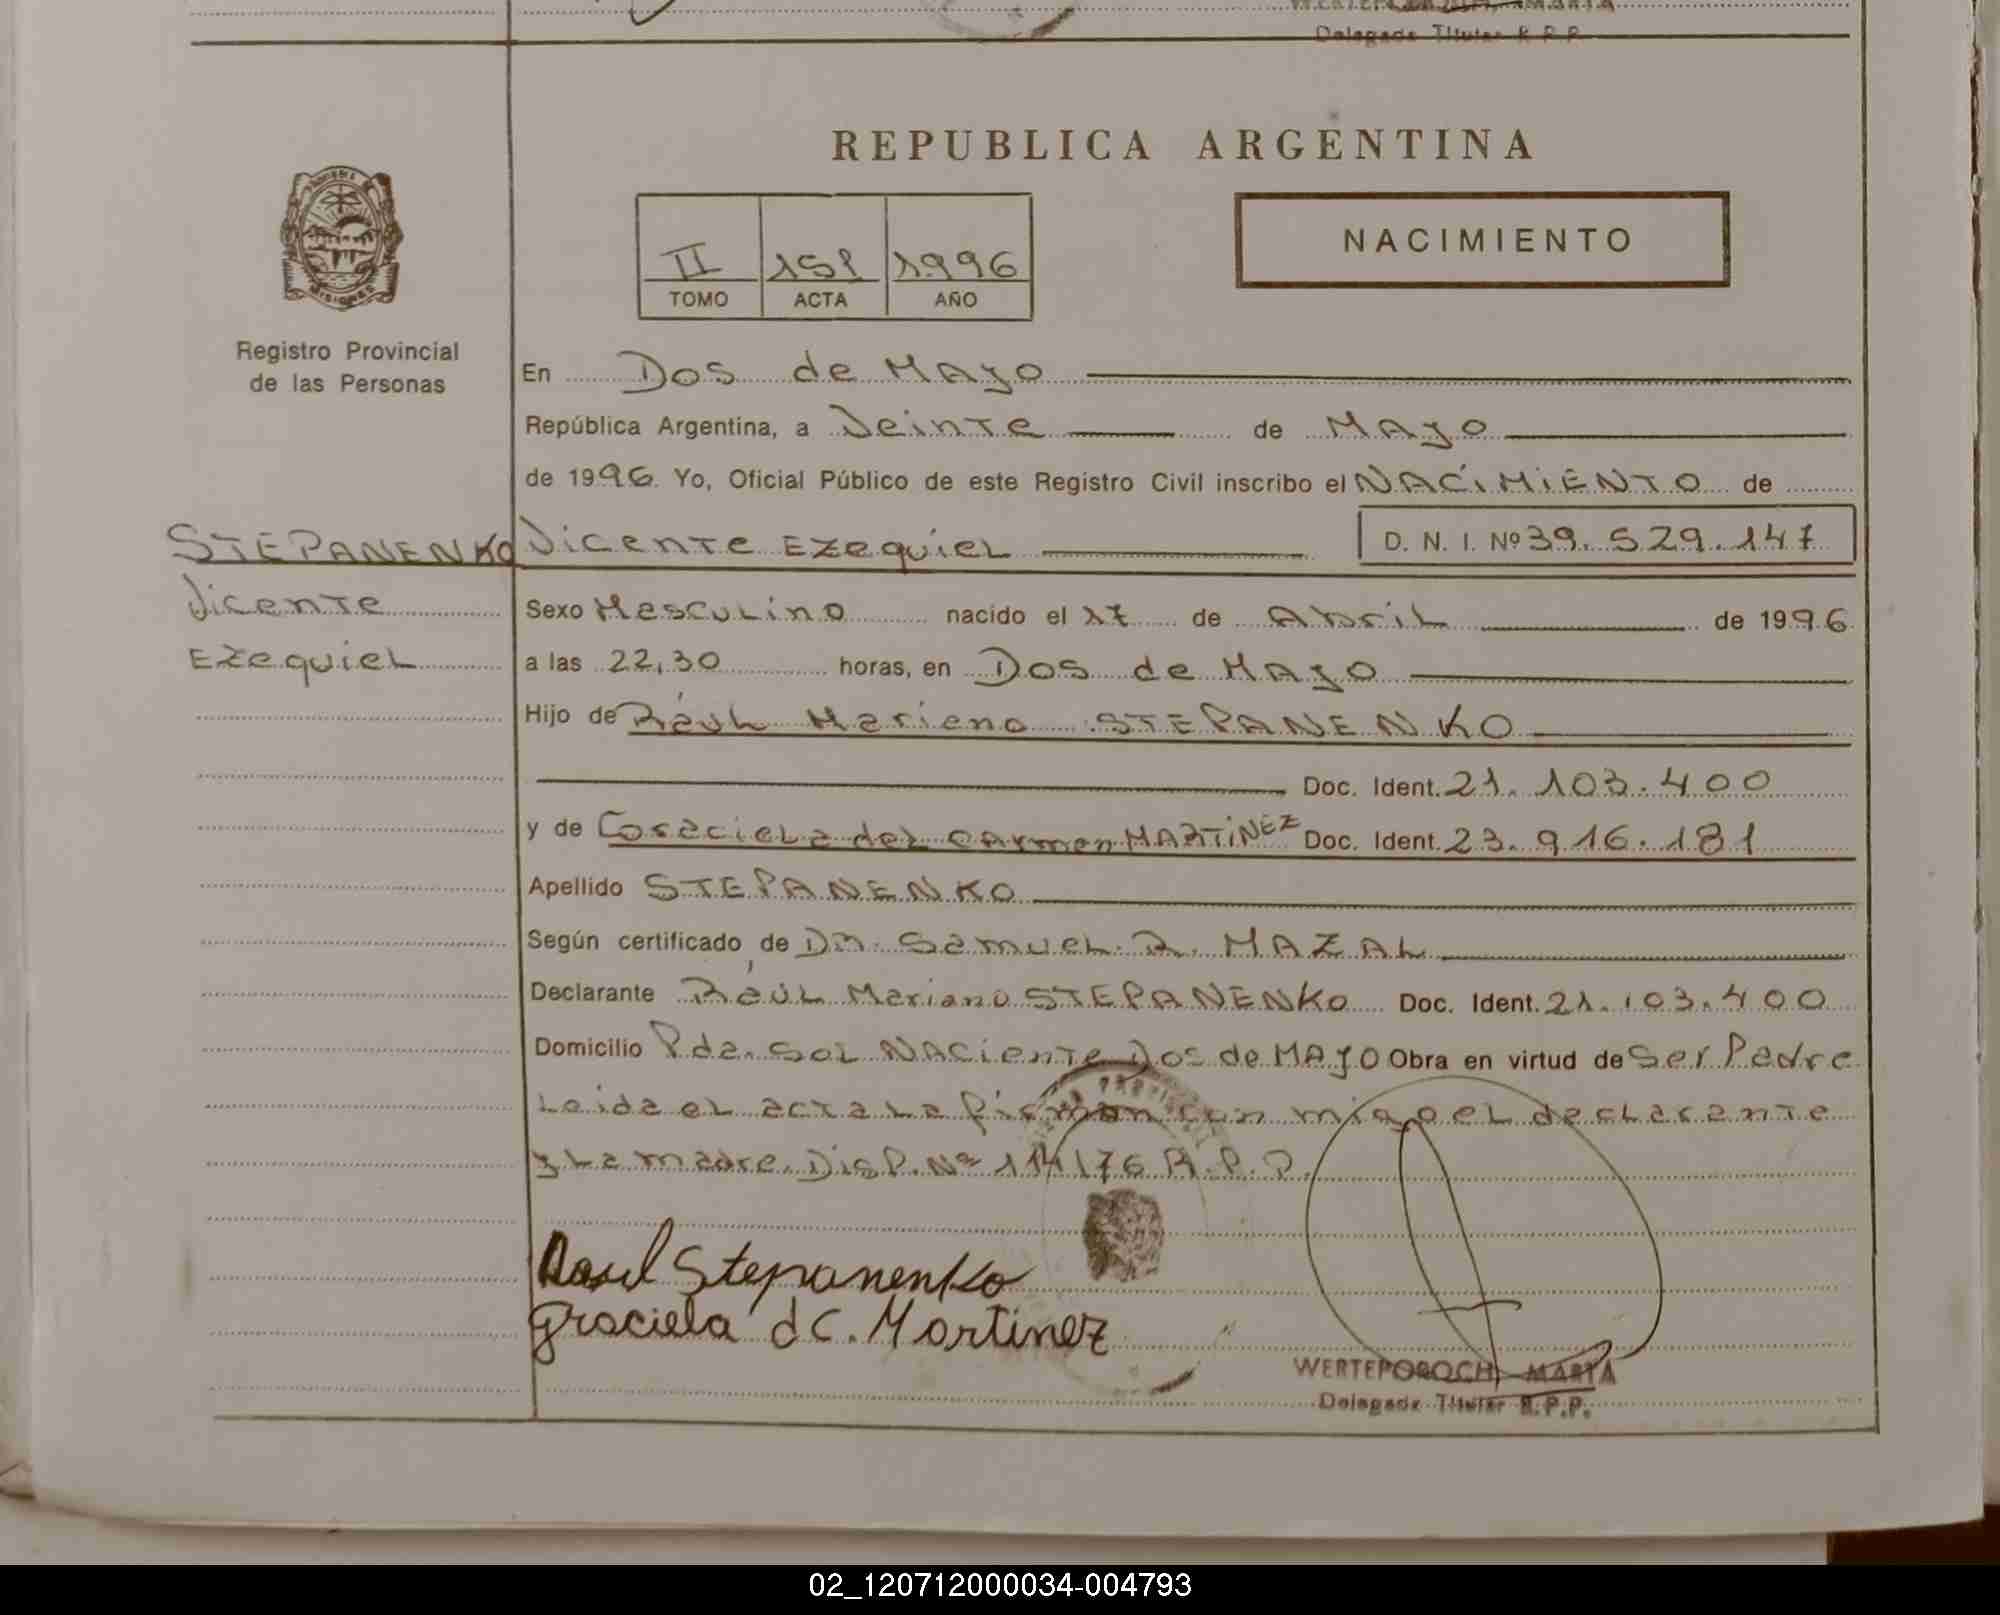 WERTEPOROCH, MARTA
Delegada Titular R.P.P.
REPUBLICA ARGENTINA
PROVINCIA DE
MISIONES
Registro Provincial
de las Personas
II 151 1996
TOMO ACTA AÑO
NACIMIENTO
En Dos de Mayo
República Argentina, a Veinte de Mayo
de 1996 Yo, Oficial Público de este Registro Civil inscribo el NACIMIENTO de
STEPANENKO Vicente Ezequiel D. N. I. Nº 39.529.147
Vicente
Ezequiel
Sexo Masculino nacido el 17 de Abril de 1996
a las 22,30 horas, en Dos de Mayo
Hijo de Raúl Mariano STEPANENKO
Doc. Ident. 21.103.400
y de Graciela del Carmen MARTINEZ Doc. Ident. 23.916.181
Apellido STEPANENKO
Según certificado de Dr. Samuel R. MAZAL
Declarante Raúl Mariano STEPANENKO Doc. Ident. 21.103.400
Domicilio Pda. Sol Naciente Dos de Mayo Obra en virtud de Ser Padre
Leida el acta la firman con migo el declarante
y la madre. Disp. Nº 114/76 R.P.P.
Raul Stepanenko
Graciela d C. Martinez
WERTEPOROCH, MARTA
Delegada Titular R.P.P.
02_120712000034-004793